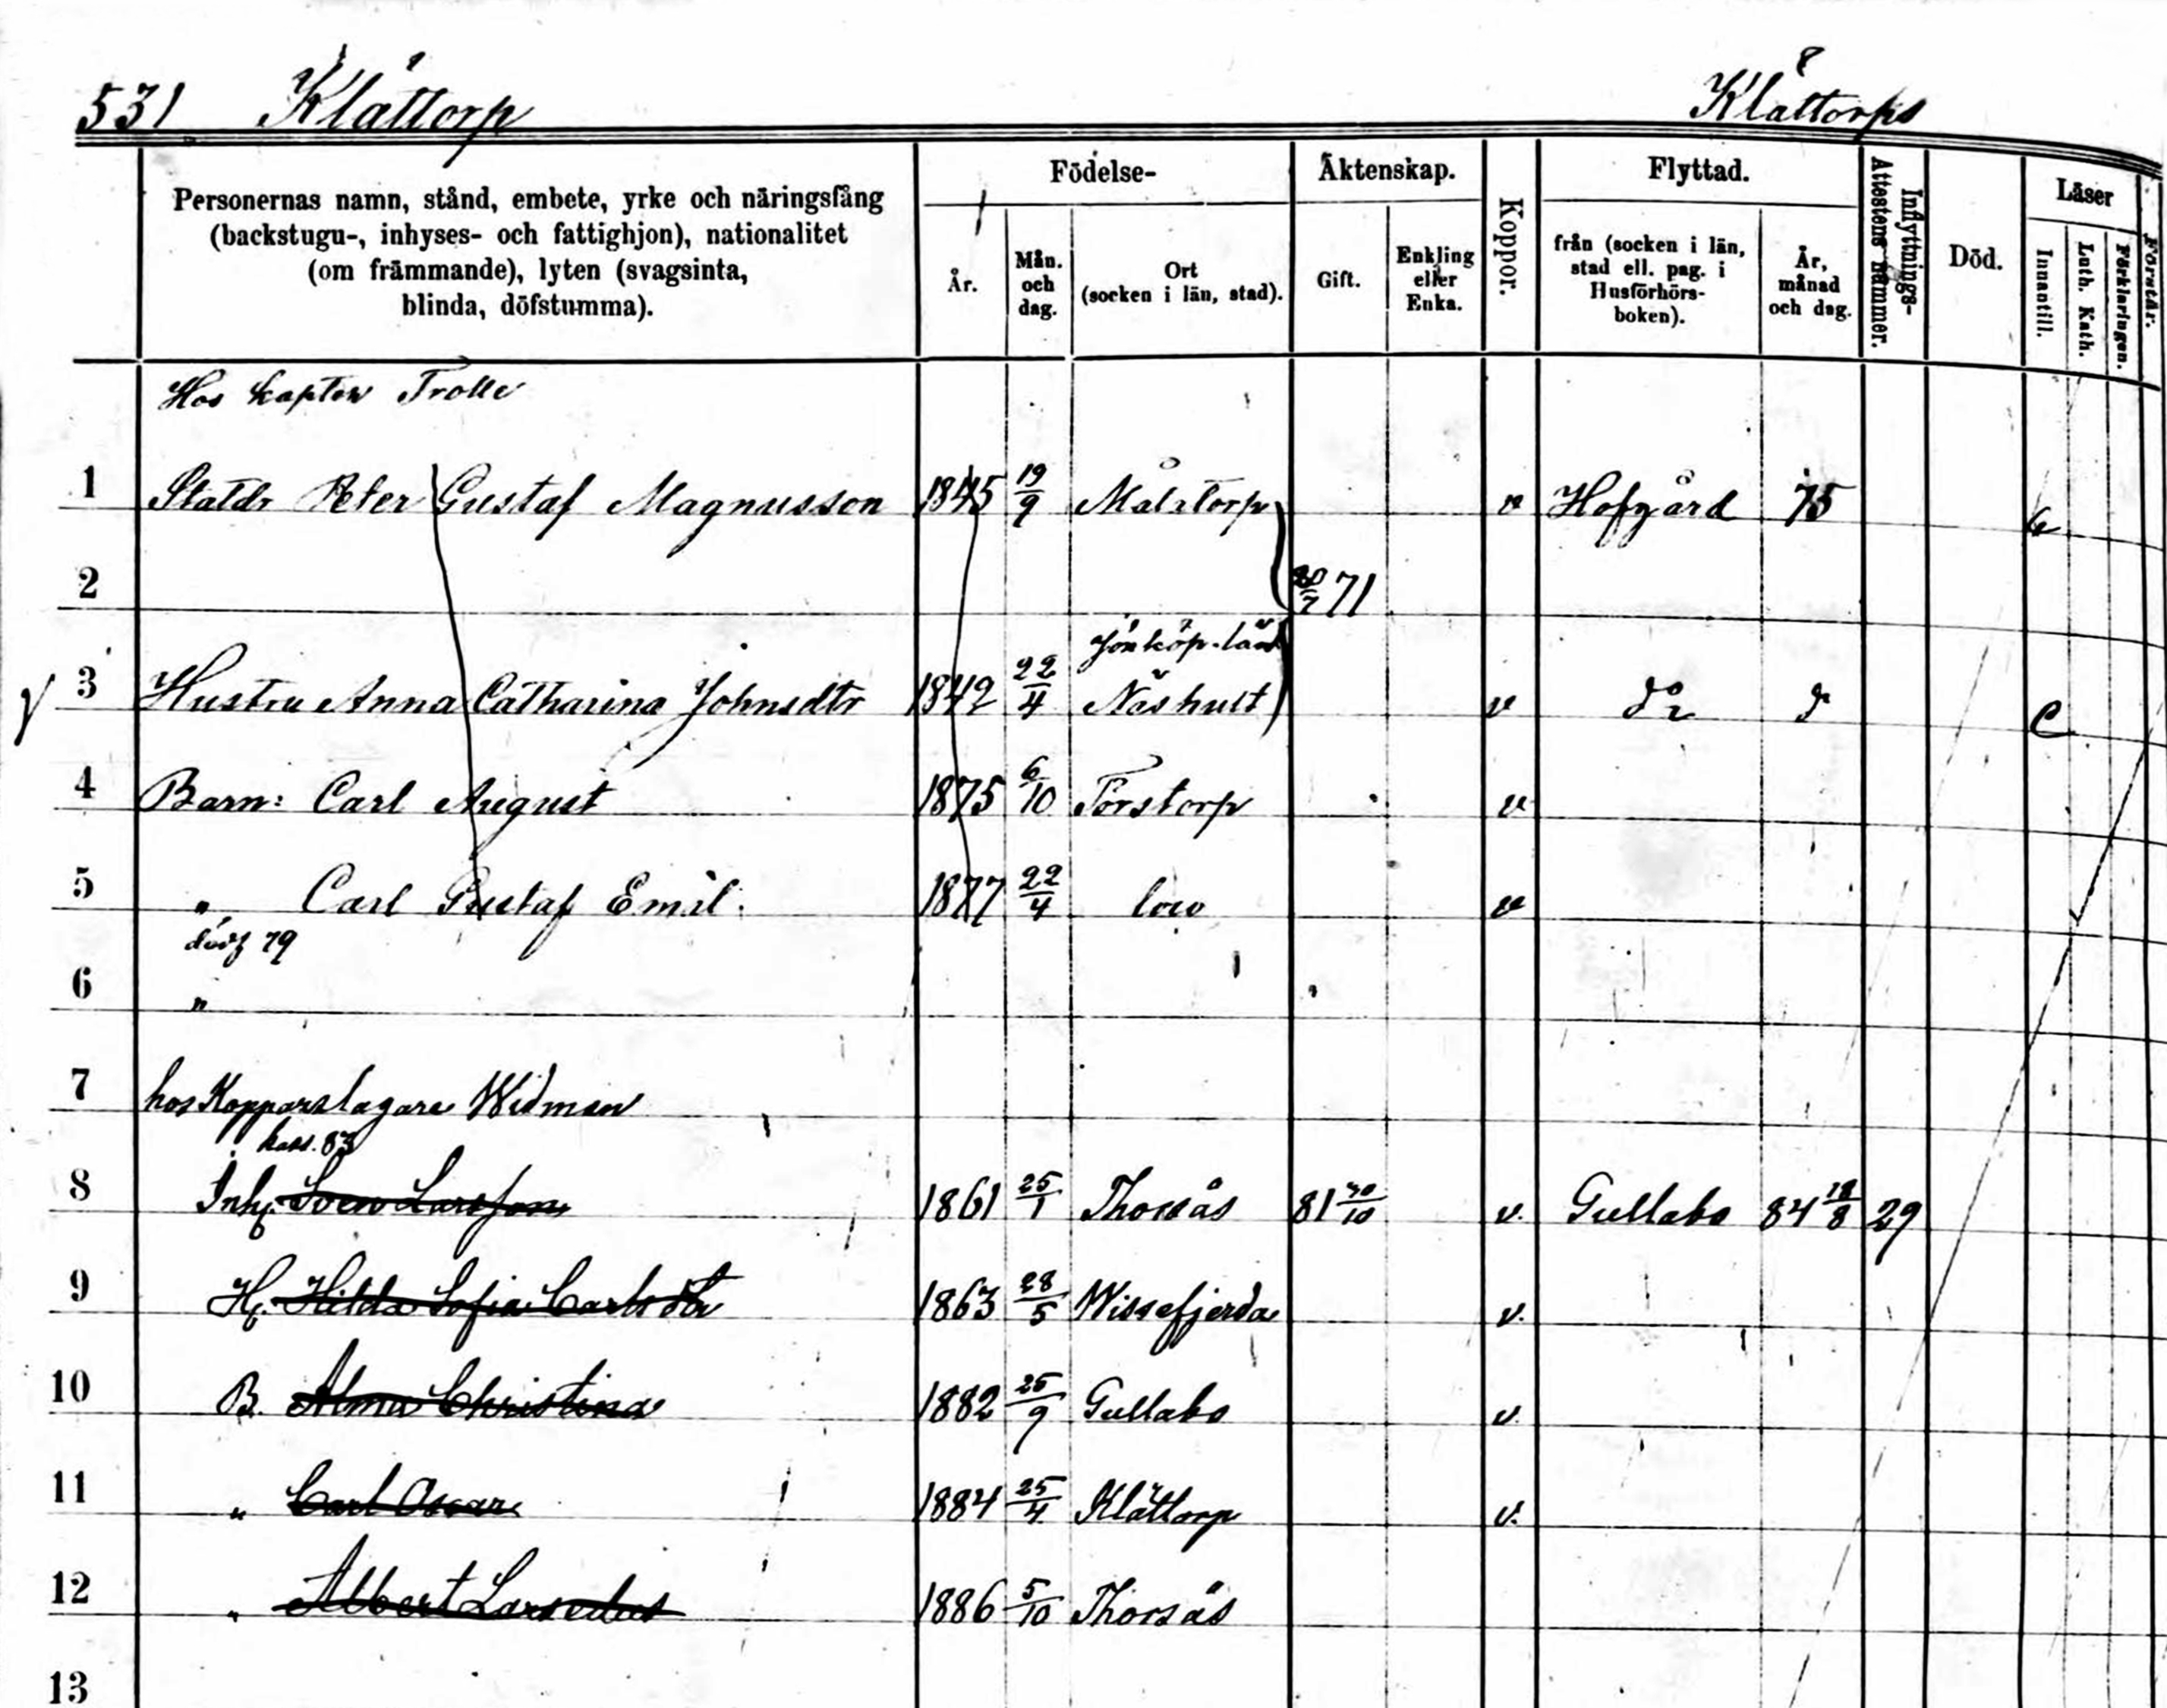 531 Klättorp Klättorps
Personernas namn, stånd, embete, yrke och näringsfång
(backstugu-, inhyses- och fattighjon), nationalitet
(om främmande), lyten (svagsinta,
blinda, döfstumma).
Födelse-
År.
Mån.
och
dag.
Ort
(socken i län, stad).
Äktenskap.
Gift.
Enkling
eller
Enka.
Koppor.
Flyttad.
från (socken i län,
stad ell. pag. i
Husförhörs-
boken).
År,
månad
och dag.
Inflyttnings-
Attestens nummer.
Död.
Läser
Innantill.
Luth. Kath.
Förklaringen.
Förstår.
Hos kapten Trolle
1 Statdr Peter Gustaf Magnusson 1845 19/9 Målatorp v Hofgård 75
2 20/7 71
Jönköp. län
3 Hustru Anna Catharina Johnsdtr 1842 22/4 Näshult v do d
4 Barn: Carl August 1875 6/10 Torstorp v
5 " Carl Gustaf Emil. 1877 22/4 v
79
6 "
7 hos Kopparslagare Widman
83
8 Inh. Sven Larsson 1861 25/1 Thorsås 81 30/10 v. Gullabo 84 18/8 29
9 H. Hilda Sofia Carlsdtr 1863 28/5 Wissefjerda v.
10 B. Alma Christina 1882 25/9 Gullabo v.
11 " Carl Oscar 1884 25/4 Klättorp v.
12 " Albert 1886 5/10 Thorsås
13